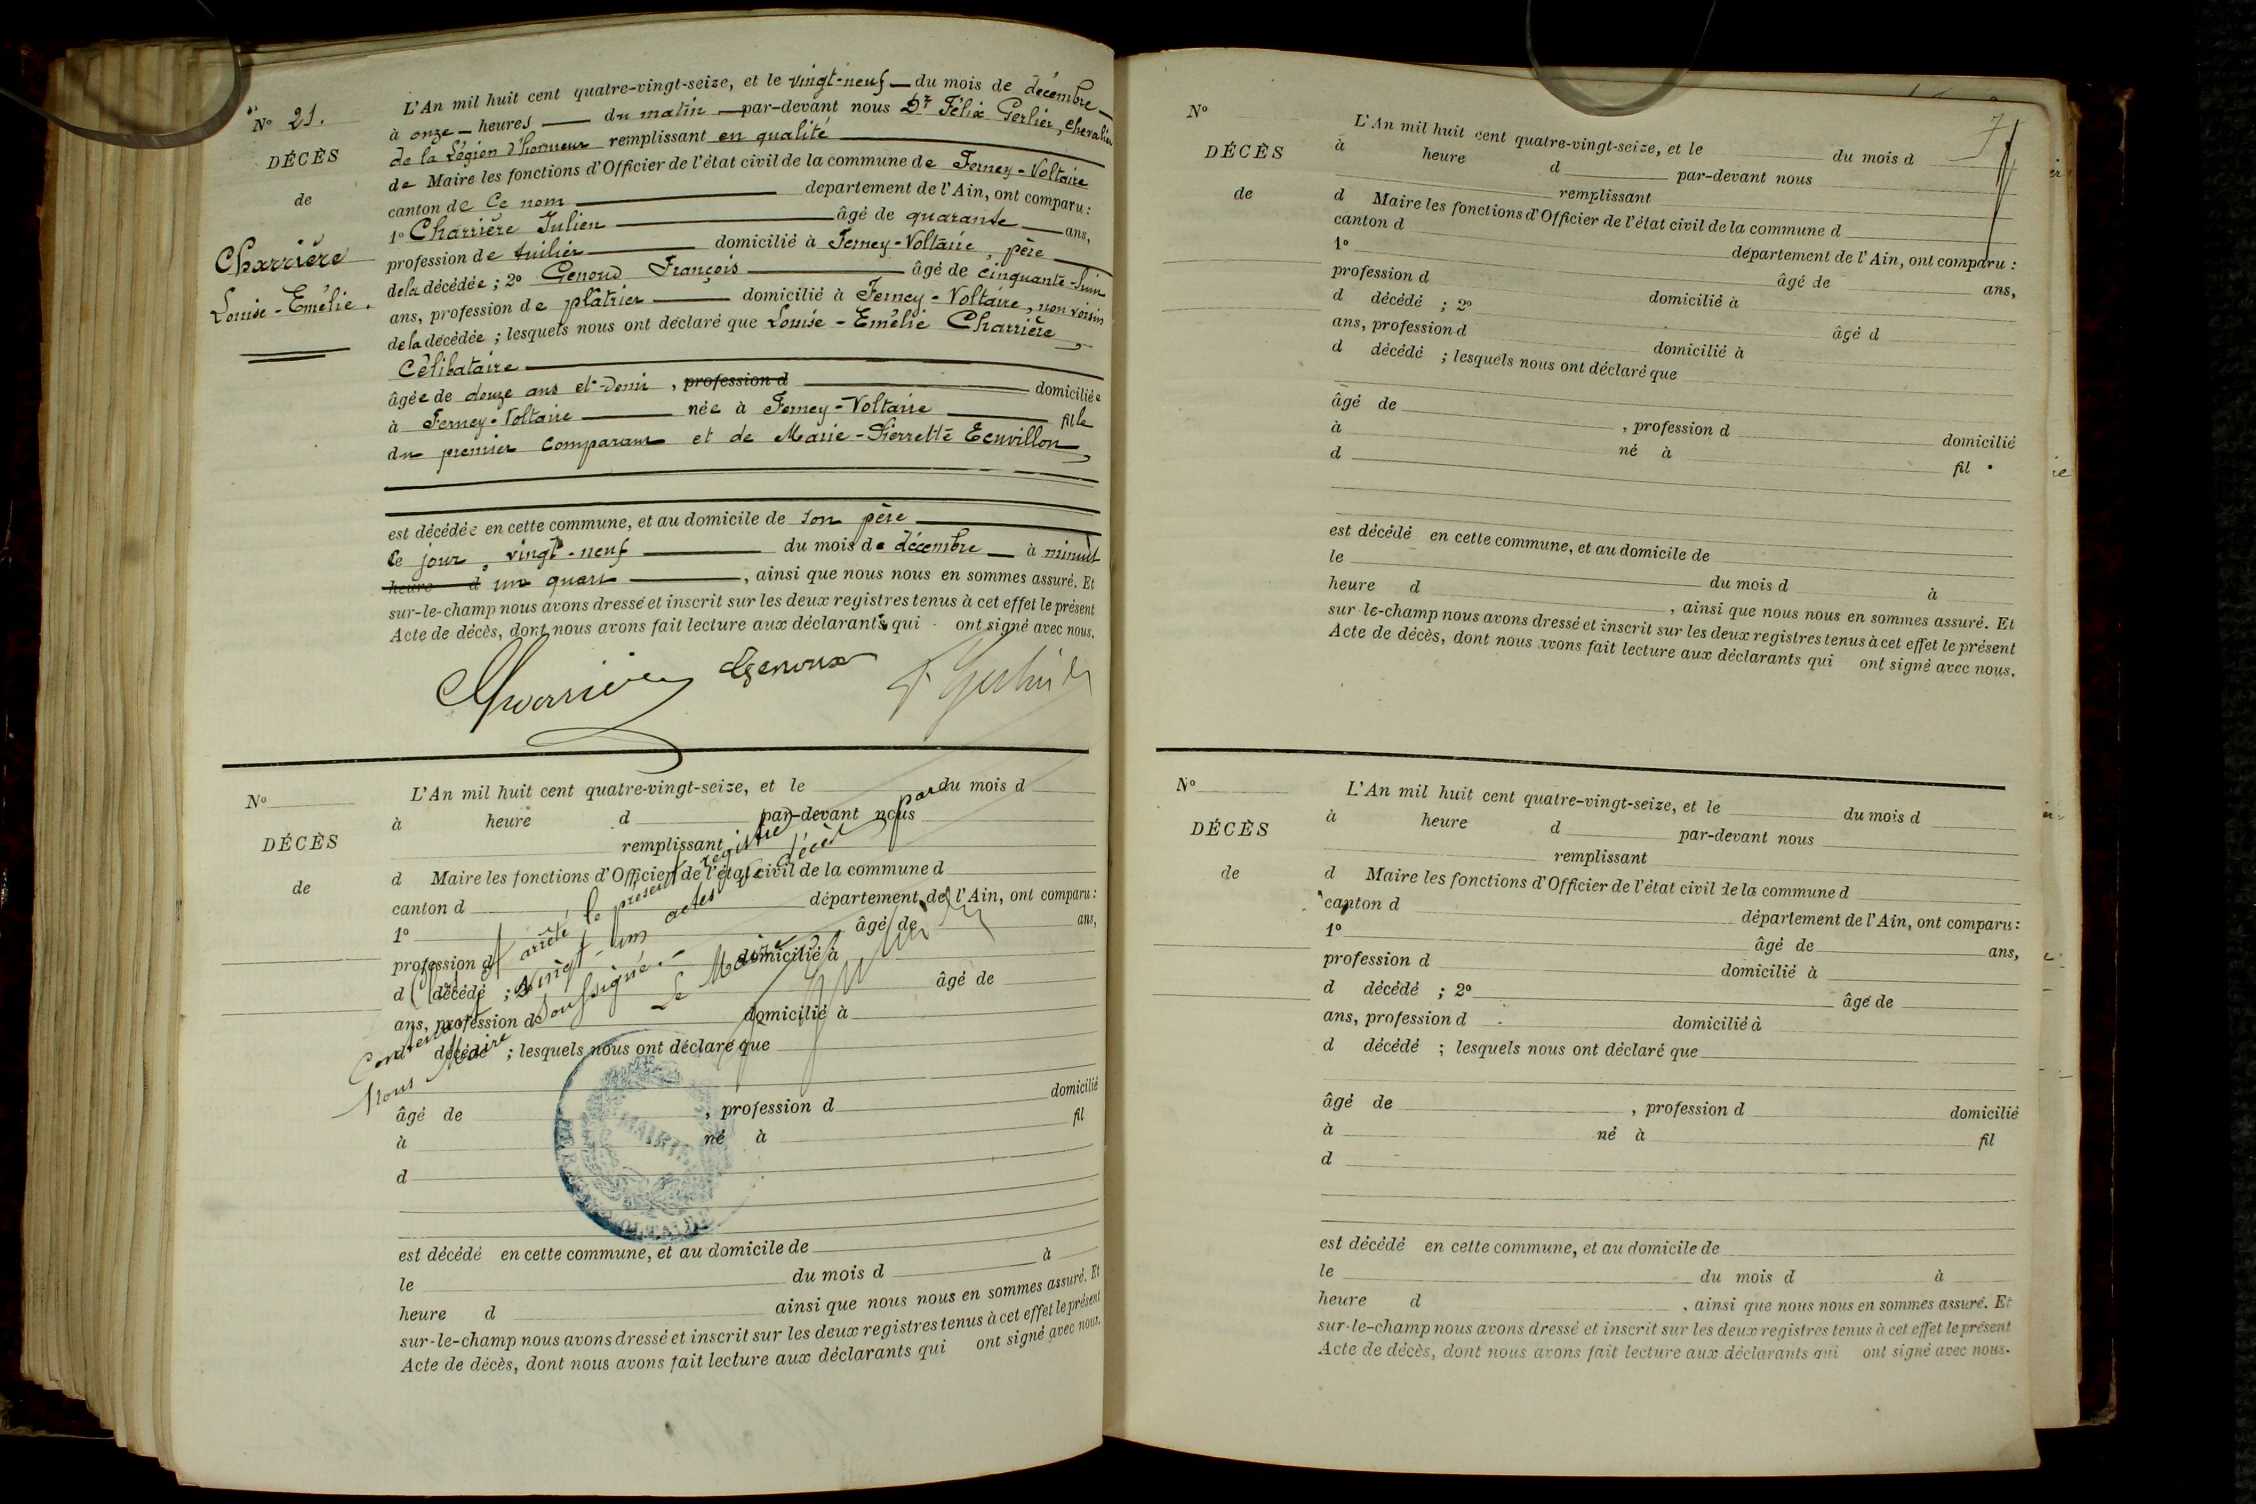 N° 21.
DÉCÈS
de
Charrière
Louise-Emélie.
L'An mil huit cent quatre-vingt-seize, et le vingt-neuf du mois de décembre
à onze heures du matin par-devant nous Dr Félix Gerlier, chevalier
de la Légion d'honneur remplissant en qualité
de Maire les fonctions d'Officier de l'état civil de la commune de Ferney-Voltaire
canton de Ce nom département de l'Ain, ont comparu :
1° Charrière Julien âgé de quarante ans,
profession de tuilier domicilié à Ferney-Voltaire, père
de la décédée ; 2° Genoud François âgé de cinquante-huit
ans, profession de plâtrier domicilié à Ferney-Voltaire, non voisin
de la décédée ; lesquels nous ont déclaré que Louise-Emélie Charrière,
Célibataire
âgée de douze ans et demi, profession d domiciliée
à Ferney-Voltaire née à Ferney-Voltaire fille
du premier comparant et de Marie-Pierrette Ecuvillon,
est décédée en cette commune, et au domicile de son père
Ce jour, vingt-neuf du mois de décembre à minuit
heure d un quart, ainsi que nous nous en sommes assuré. Et
sur-le-champ nous avons dressé et inscrit sur les deux registres tenus à cet effet le présent
Acte de décès, dont nous avons fait lecture aux déclarants qui ont signé avec nous.
Charrière Genoux F. Gerlier
N°
DÉCÈS
de
L'An mil huit cent quatre-vingt-seize, et le du mois d
à heure d par-devant nous
remplissant
d Maire les fonctions d'Officier de l'état civil de la commune d
canton d département de l'Ain, ont comparu :
1° âgé de ans,
profession d domicilié à
d décédé ; 2° âgé de
ans, profession d domicilié à
d décédé ; lesquels nous ont déclaré que
âgé de , profession d domicilié
à né à fil
d
est décédé en cette commune, et au domicile de
le du mois d à
heure d ainsi que nous nous en sommes assuré. Et
sur-le-champ nous avons dressé et inscrit sur les deux registres tenus à cet effet le présent
Acte de décès, dont nous avons fait lecture aux déclarants qui ont signé avec nous.
Clos et arrêté le présent registre
Contenant vingt-un actes de décès, par
Nous Maire soussigné.
Le Maire
MAIRIE
N°
DÉCÈS
de
7
L'An mil huit cent quatre-vingt-seize, et le du mois d
à heure d par-devant nous
remplissant
d Maire les fonctions d'Officier de l'état civil de la commune d
canton d département de l'Ain, ont comparu :
1° âgé de ans,
profession d domicilié à
d décédé ; 2° âgé d
ans, profession d domicilié à
d décédé ; lesquels nous ont déclaré que
âgé de , profession d domicilié
à né à fil
d
est décédé en cette commune, et au domicile de
le du mois d à
heure d , ainsi que nous nous en sommes assuré. Et
sur-le-champ nous avons dressé et inscrit sur les deux registres tenus à cet effet le présent
Acte de décès, dont nous avons fait lecture aux déclarants qui ont signé avec nous.
N°
DÉCÈS
de
L'An mil huit cent quatre-vingt-seize, et le du mois d
à heure d par-devant nous
remplissant
d Maire les fonctions d'Officier de l'état civil de la commune d
canton d département de l'Ain, ont comparu :
1° âgé de ans,
profession d domicilié à
d décédé ; 2° âgé de
ans, profession d domicilié à
d décédé ; lesquels nous ont déclaré que
âgé de , profession d domicilié
à né à fil
d
est décédé en cette commune, et au domicile de
le du mois d à
heure d , ainsi que nous nous en sommes assuré. Et
sur-le-champ nous avons dressé et inscrit sur les deux registres tenus à cet effet le présent
Acte de décès, dont nous avons fait lecture aux déclarants qui ont signé avec nous.